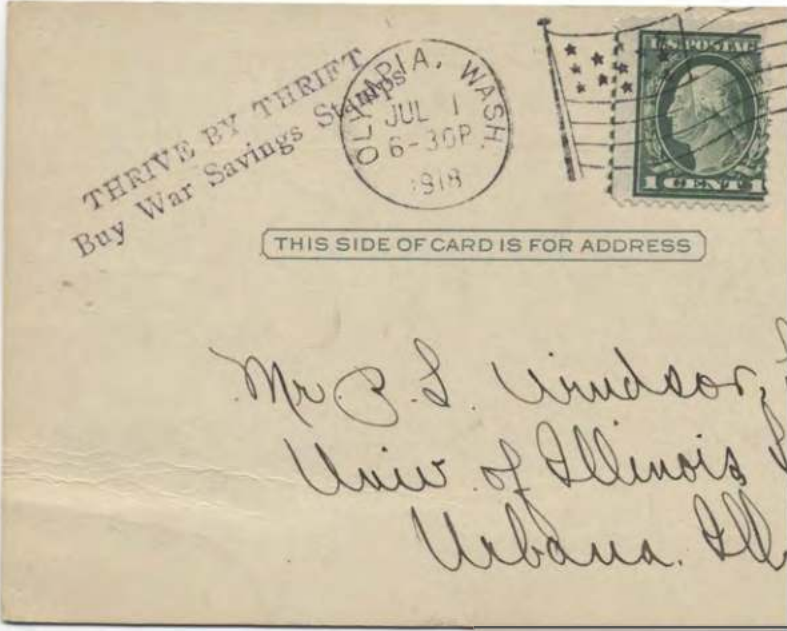 THRIVE BY THRIFT
Buy War Savings Stamps
OLYMPIA, WASH.
JUL 1
6-30P.
1918
U.S. POSTAGE
1 CENT 1
THIS SIDE OF CARD IS FOR ADDRESS
Mr. P. L. Windsor,
Univ. of Illinois
Urbana. Ill